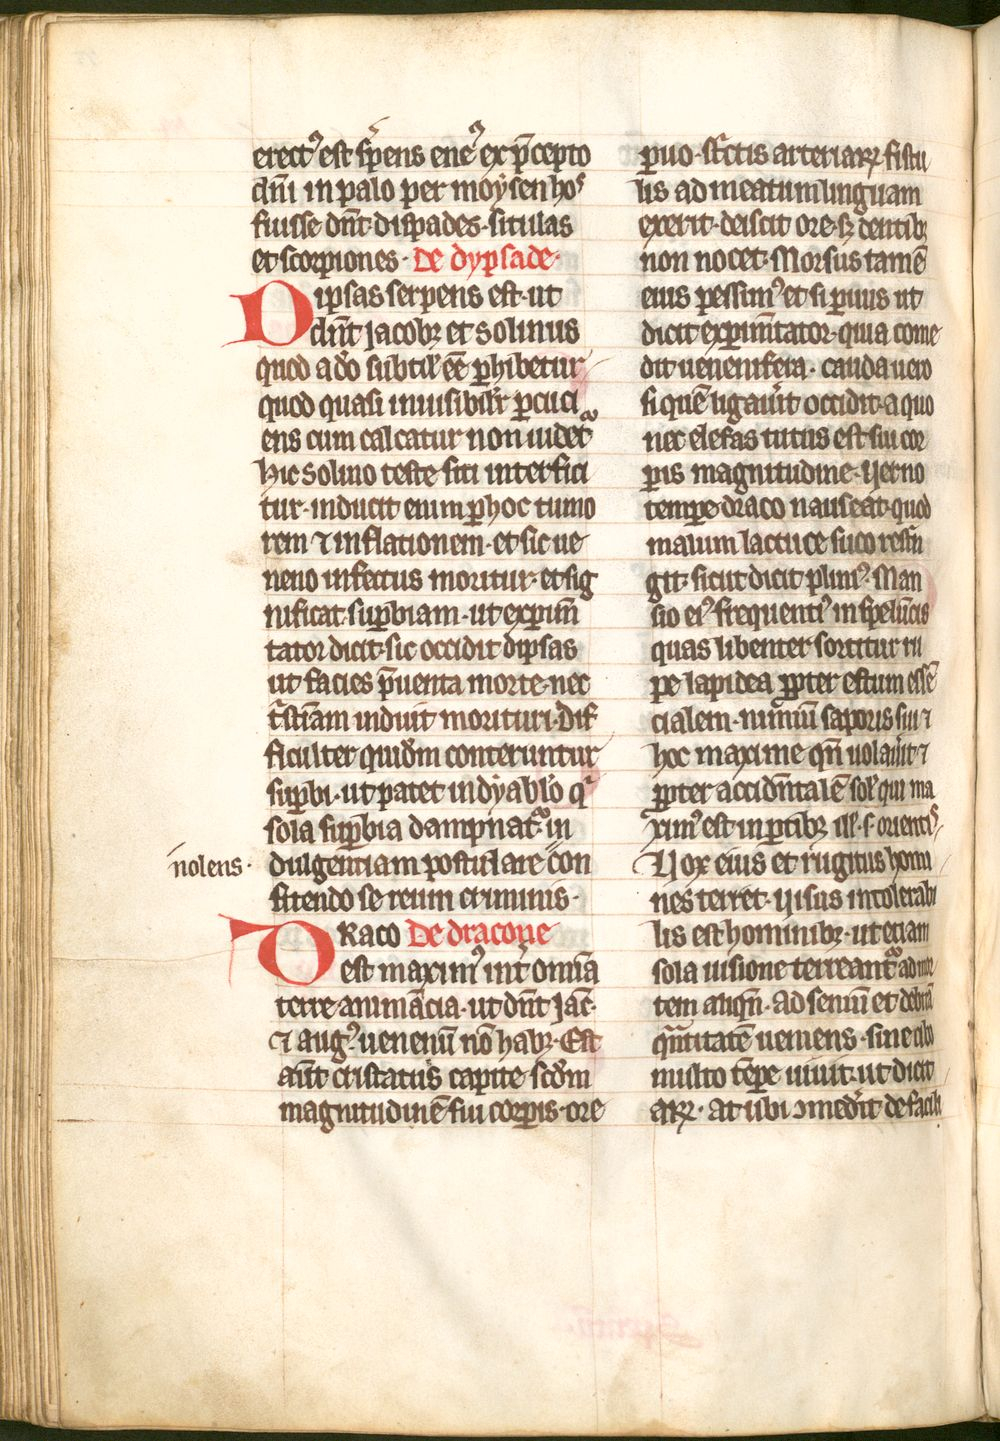 erect᾽ est s̄pens ene᾽ ex p̄cepto
dn̄i in palo per moẏsen hoˢ
fuisse dn̄t· dispades· situlas
et scorpiones· De dypsade·
Dipsas serpens est· ut
dn̄t jacobꝫ et solinus
quod adō subtil᾽ ēē ꝑhibetur
quod quasi inuisibil᾽r ꝑcuci
ens cum calcatur non uidet᷑
hic Solino teste siti interfici
tur· inducit enim ꝑ hoc tumo
rem ⁊ inflationem· et sic ue
neno infectus moritur· et sig
nificat suꝑbiam· ut exꝑim̄
tator dicit· sic occidit dipsas
ut facies p̄uenta morte· nec
t᷑stic̄iam induit morituri· Dif
ficulter quidō̄m conteruntur
suꝑbi· ut patet in dẏabl᾽o qͣ
sola suꝑbia dampnat᷑ in
nolens·
dulgentiam postulare con
fitendo se reum criminis·
DRaco De dracone
est maxim᾽ int᷑ om̄ia
terre animācia· ut dn̄t jac̄·
⁊ aug᾽· uenenū nō habꝫ· Est
aūt cristatus capite· scdō̄m
magnitudinē sui corꝑis· ore
ꝑuo· st᷑ctis arteriaꝝ fistu
lis ad meatum linguam
exerit· deiscit ore· sꝫ dentibꝫ
non nocet· Morsus tamē
eius pessim᾽ et si ꝑuus ut
dicit exꝑim̄tator· quia come
dit uenenifera· cauda uero
si quē ligau᾽it occidit· a quo
nec elefas tutus est sui cor
ꝑis magnitudine· Uerno
temꝑe draco nauseat· quod
malum lactuce suco restri
git· sicut dicit plini᾽· Man
sio ei᾽ frequenti᾽ in speluncis
quas libenter sortitur ru
pe lapidea ꝓpter estum essē
cialem· nimiū saporis sui ⁊
hoc maxime qn̄ uolau᾽it ⁊
ꝓpter accidn̄talē sol᾽ qui ma
xim᾽ est in ꝑtibꝫ ill᾽· s· orientiˢ
Uox eius et rugitus homi
nes terret· Uisus intolerabi
lis est hominibꝫ· ut etiam
sola uisione terreant᷑ ad mor
tem aliqn̄· ad seniū et debitā
qͣntitatē ueniens· sine cibo
multo tēpe uiuit· ut dicit
aꝝ· at ubi ↄmed᾽it de facili